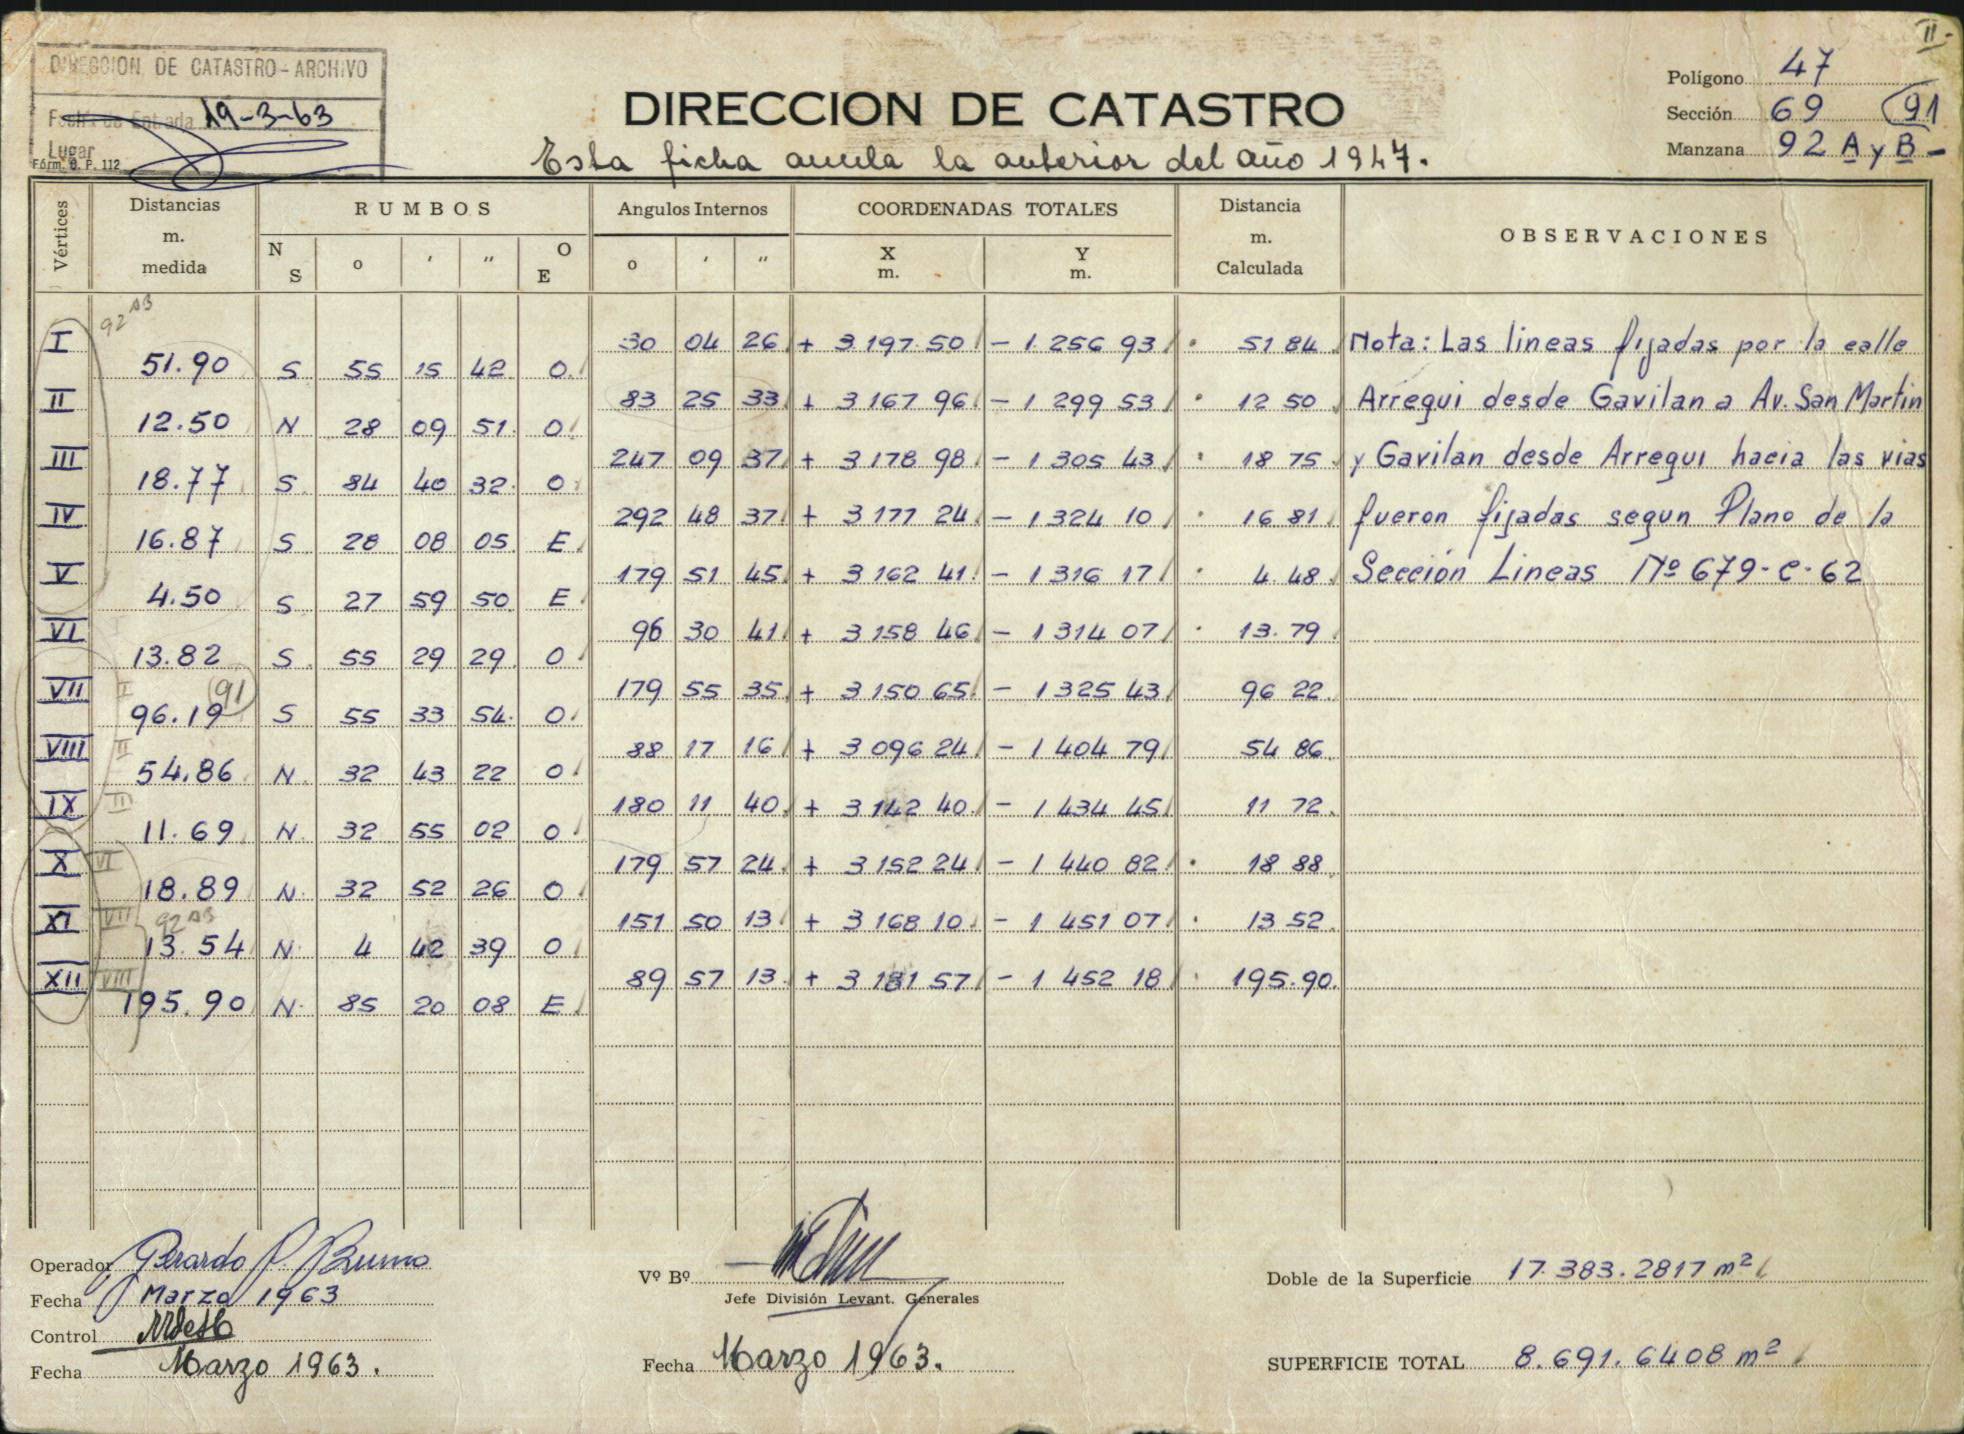 II-
DIRECCION DE CATASTRO - ARCHIVO
Fecha de Entrada 19-3-63
Lugar
Fórm. O. P. 112
DIRECCION DE CATASTRO
Esta ficha anula la anterior del año 1947.
Polígono 47
Sección 69 91
Manzana 92 A y B -
Vértices
Distancias m. medida
RUMBOS
N S o ' " O E
Angulos Internos
o ' "
COORDENADAS TOTALES
X m. Y m.
Distancia m. Calculada
OBSERVACIONES
92 AB
I 30 04 26 + 3 197 50 - 1 256 93 51 84 Nota: Las lineas fijadas por la calle
51.90 S 55 15 42 O
II 83 25 33 + 3 167 96 - 1 299 53 12 50 Arregui desde Gavilan a Av. San Martin
12.50 N 28 09 51 O
III 247 09 37 + 3 178 98 - 1 305 43 18 75 y Gavilan desde Arregui hacia las vias
18.77 S 84 40 32 O
IV 292 48 37 + 3 177 24 - 1 324 10 16 81 fueron fijadas segun Plano de la
16.87 S 28 08 05 E
V 179 51 45 + 3 162 41 - 1 316 17 4 48 Sección Lineas Nº 679-C-62
4.50 S 27 59 50 E
VI 96 30 41 + 3 158 46 - 1 314 07 13.79
13.82 S 55 29 29 O
VII I 91 179 55 35 + 3 150 65 - 1 325 43 96 22
96.19 S 55 33 54 O
VIII II 88 17 16 + 3 096 24 - 1 404 79 54 86
54.86 N 32 43 22 O
IX III 180 11 40 + 3 142 40 - 1 434 45 11 72
11.69 N 32 55 02 O
X VI 179 57 24 + 3 152 24 - 1 440 82 18 88
18.89 N 32 52 26 O
XI VII 92 AB 151 50 13 + 3 168 10 - 1 451 07 13 52
13.54 N 4 42 39 O
XII VIII 89 57 13 + 3 181 57 - 1 452 18 195.90
195.90 N 85 20 08 E
Operador Gerardo P. Bruno
Fecha Marzo 1963
Control
Fecha Marzo 1963.
Vº Bº
Jefe División Levant. Generales
Fecha Marzo 1963.
Doble de la Superficie 17.383.2817 m²
SUPERFICIE TOTAL 8.691.6408 m²